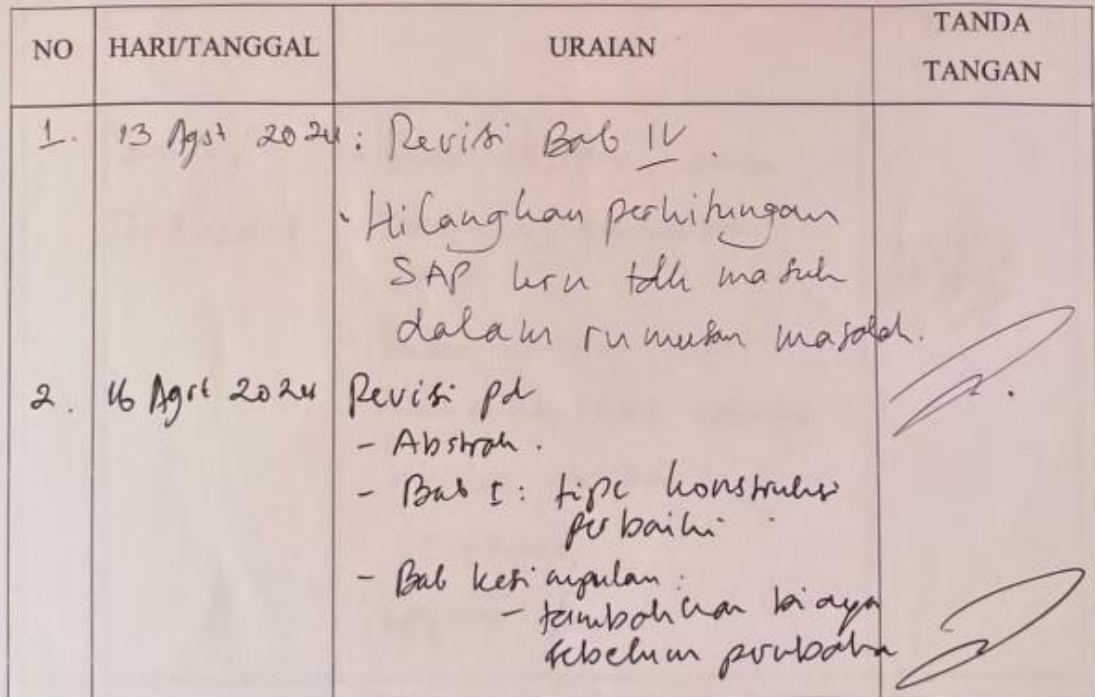 NO HARI/TANGGAL URAIAN TANDA TANGAN
1. 13 Agst 2024 : Revisi Bab IV.
- Hilangkan perhitungan
SAP krn tdk masuk
dalam rumusan masalah.
2. 16 Agst 2024 Revisi pd
- Abstrak.
- Bab I: tipe konstruksi
perbaiki
- Bab kesimpulan:
- tambahkan biaya
sebelum